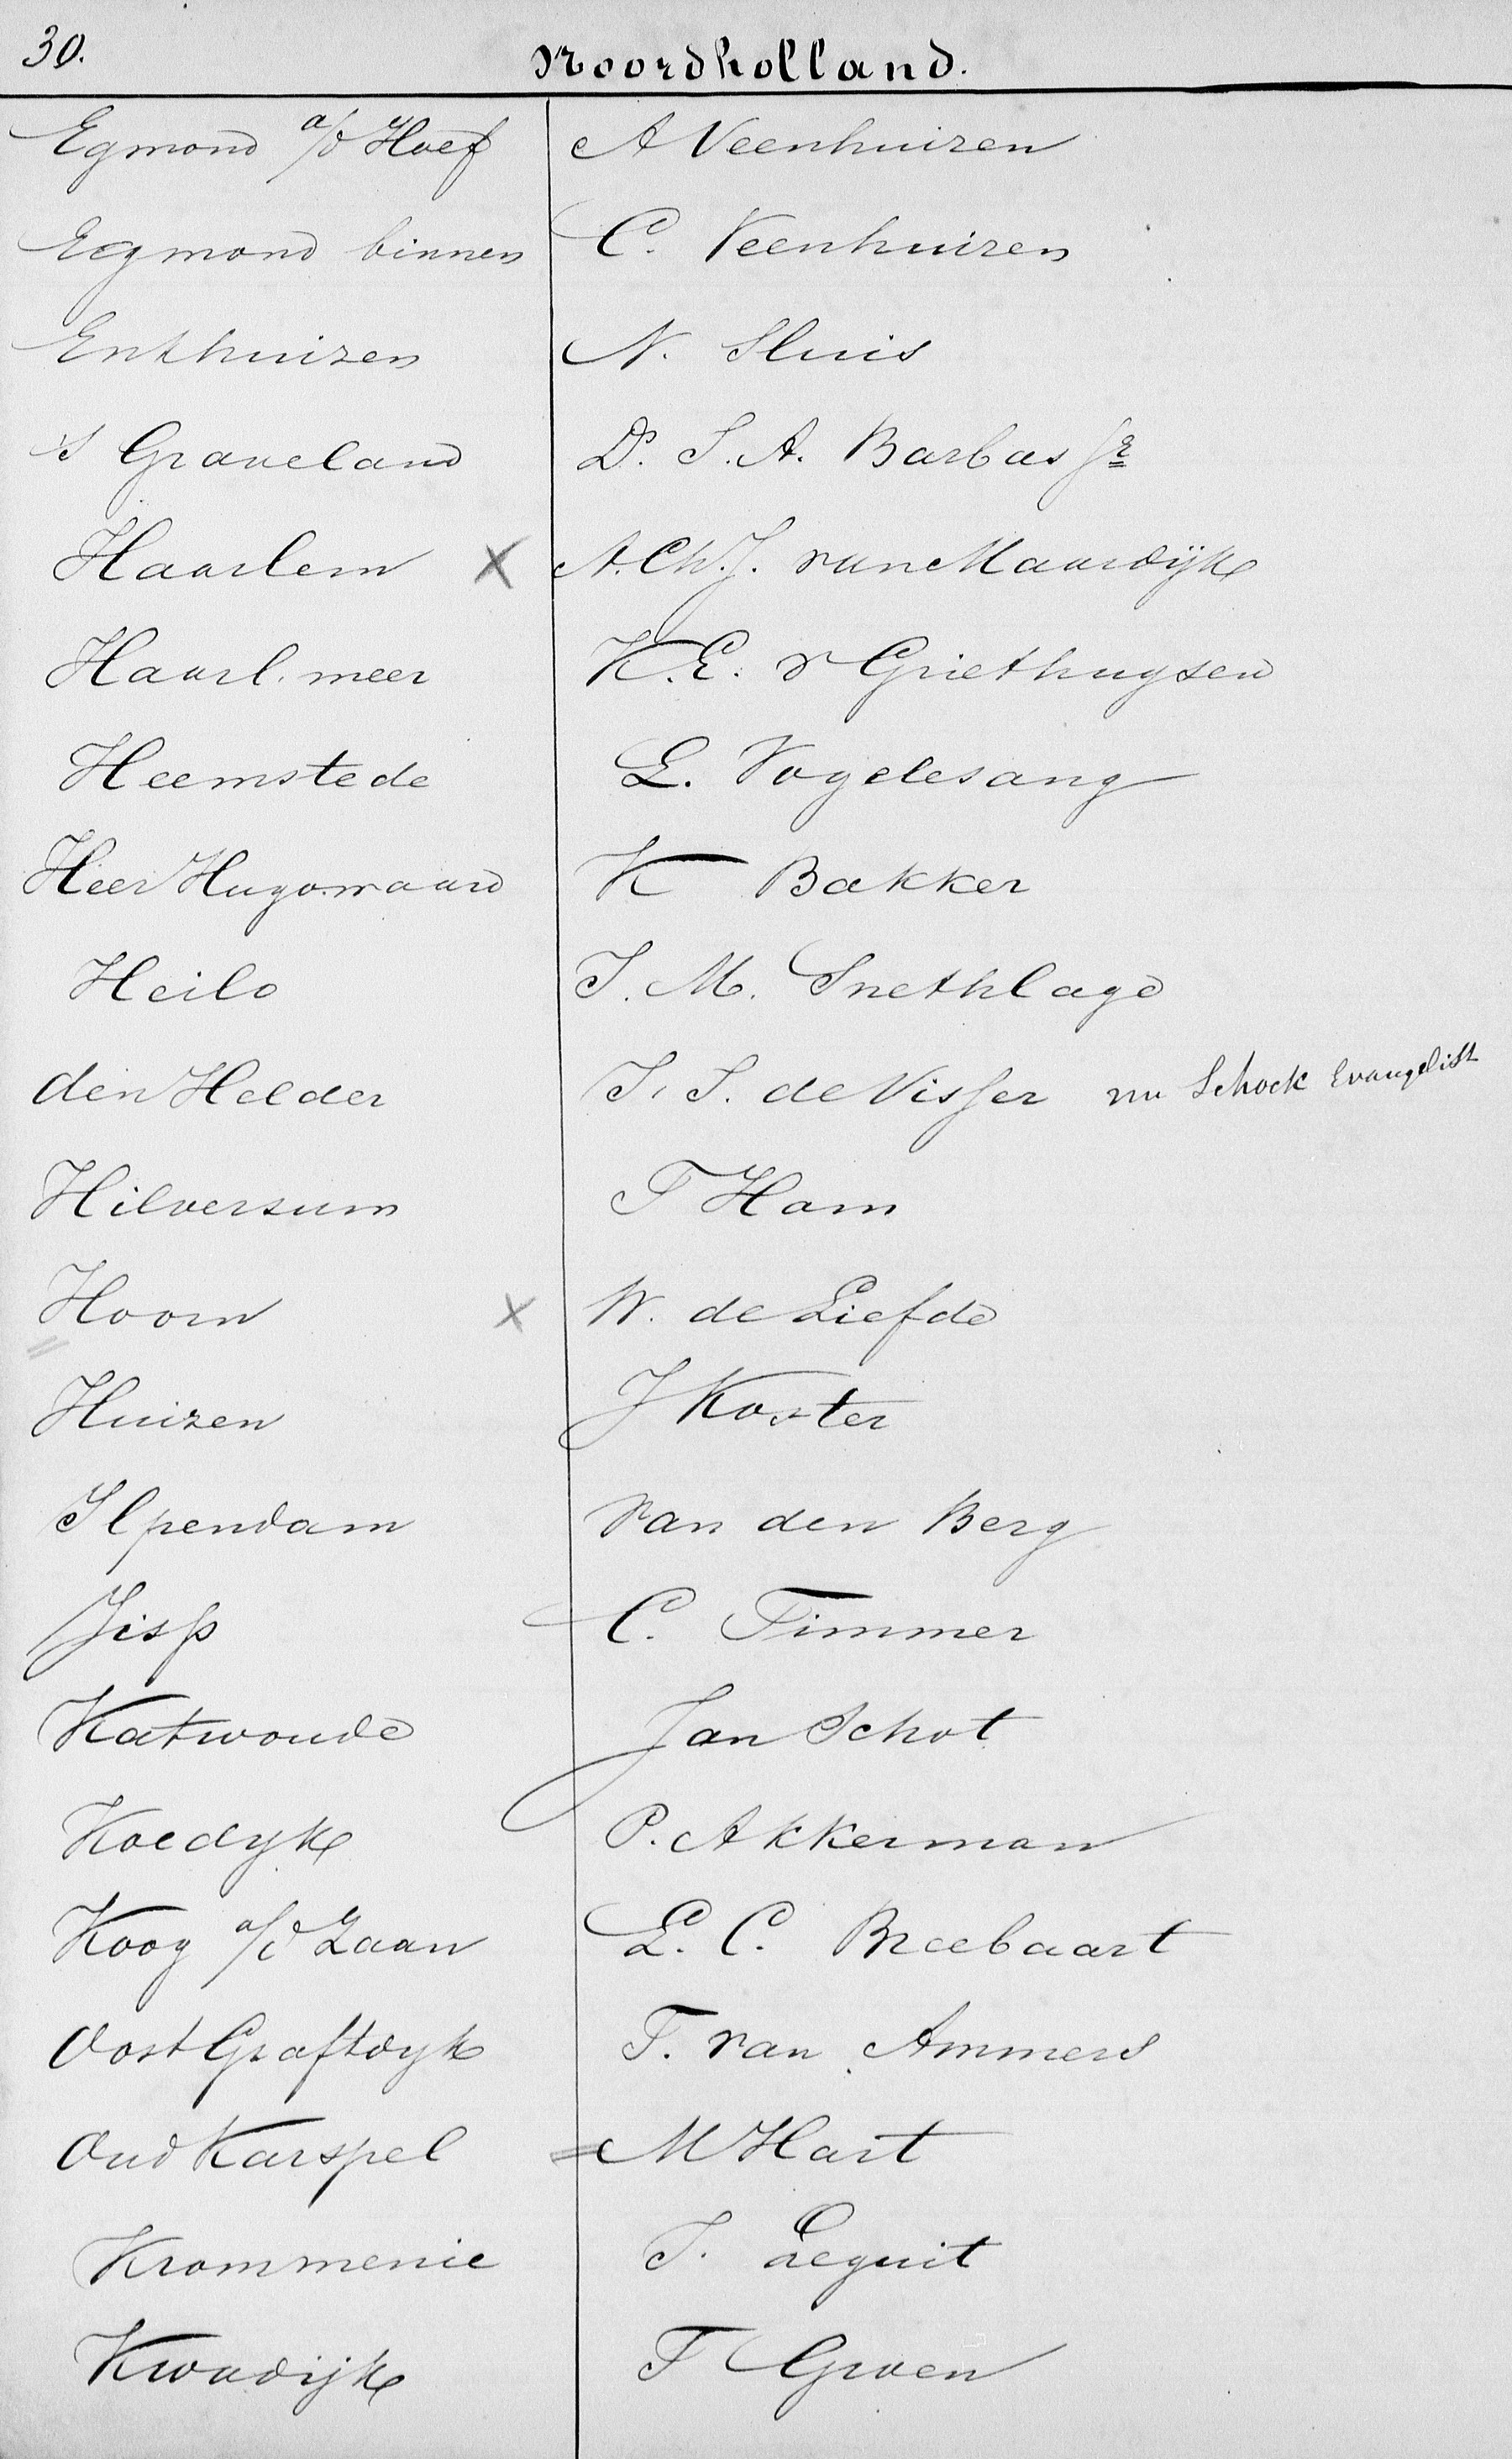 30.
Noordholland.
Egmond a/d Hoef A Veenhuizen
Egmond binnen C. Veenhuizen
Enkhuizen N. Sluis
's Graveland Ds. S. A. Barbas Jr
Haarlem X A. Ch. J. van Maardijk
Haarl. meer K. E. v Griethuysen
Heemstede L. Vogelesang
Heer Hugowaard K Bakker
Heilo J. M. Snethlage
den Helder J. S. de Visser nu Schock Evangelist
Hilversum T Ham
Hoorn X W. de Liefde
Huizen J Koster
Ilpendam van den Berg
Jisp C. Timmer
Katwoude Jan Schot
Koedyk P. Akkerman
Koog a/d Zaan L. C. Breebaart
Oost Graftdyk T. van Ammers
Oud Karspel = M Hart
Krommenie J. Leguit
Kwadijk T Groen